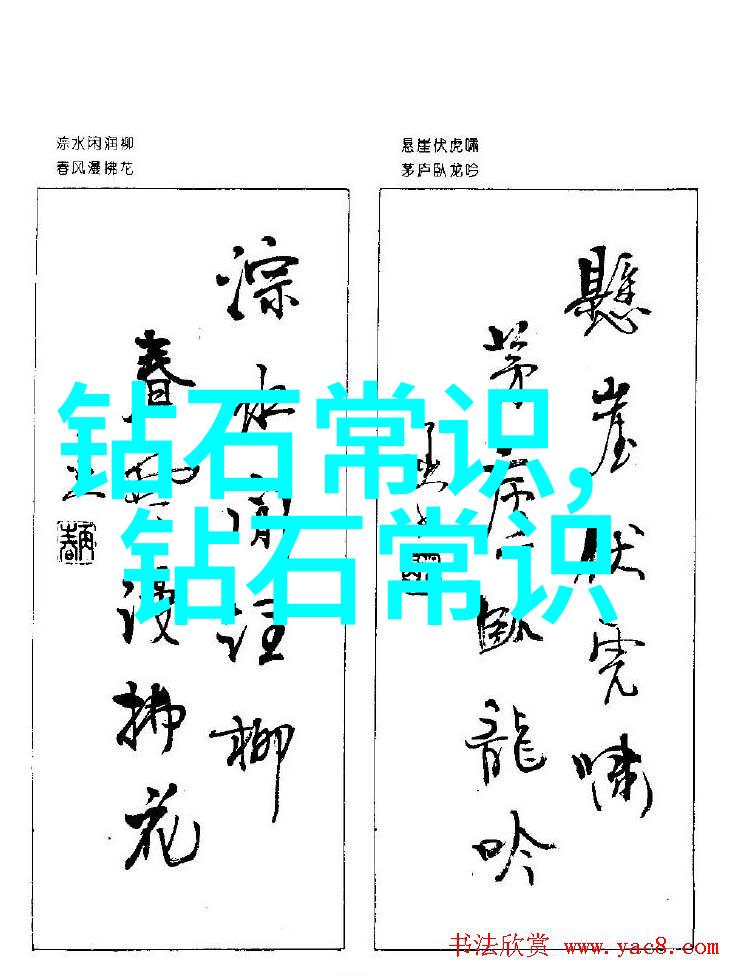 淙水闲润柳
春风漫拂花
悬崖伏虎啸
茅庐卧龙吟
懸崖伏虎嘯
茅庐臥龍吟
淙水闲润柳
春风漫拂花
钻石常识,
钻石常识
书法欣赏 www.yac8.com